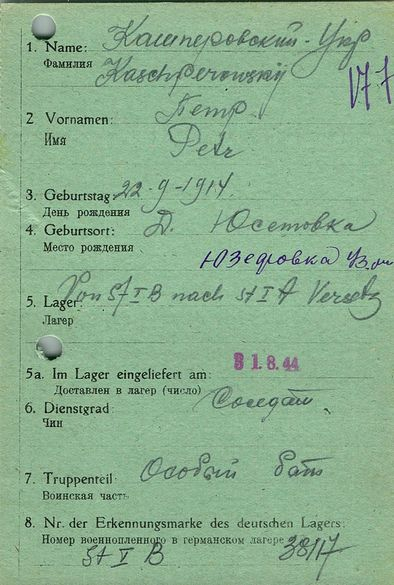 1. Name: Кашперовский - Укр
Фамилия Kaschperowskij
V77
2 Vornamen: Петр
Имя Petr
3. Geburtstag: 22-9-1914.
День рождения
4. Geburtsort: Д. Юсетовка
Место рождения
Юзефовка
5. Lager: Von St I B nach St I A Versetz
Лагерь
5a. Im Lager eingeliefert am: 31.8.44
Доставлен в лагерь (число)
6. Dienstgrad: Солдат
Чин
7. Truppenteil: Особый бат
Воинская часть
8. Nr. der Erkennungsmarke des deutschen Lagers:
Номер военнопленного в германском лагере
St I B